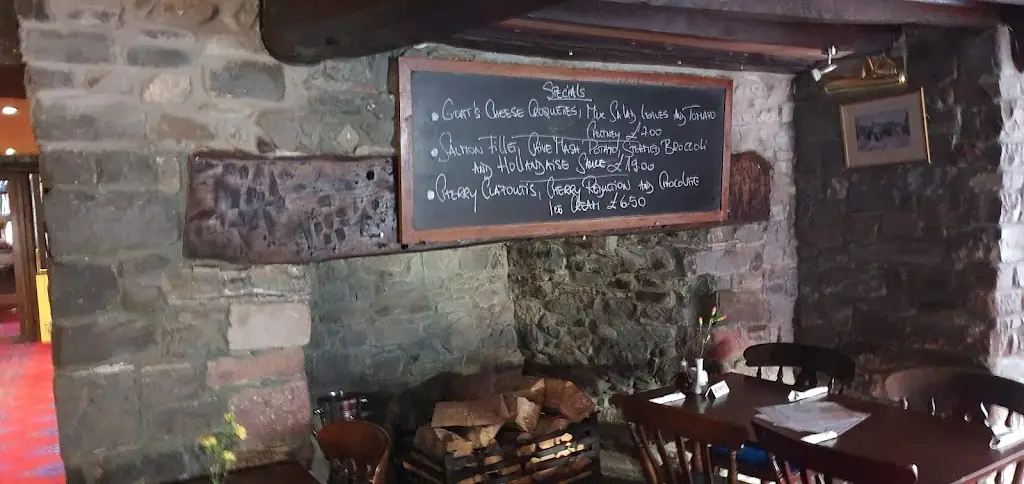 SPECIALS
• GOAT'S CHEESE CROQUETES, MIX SALAD LEAVES AND TOMATO
CHUTNEY £7.00
• SALMON FILLET, CHIVE MASH POTATO, SAUTEED BROCCOLI
AND HOLLANDAISE SAUCE £17.00
• CHERRY CLAFOUTIS, CHERRY REDUCTION AND CHOCOLATE
ICE CREAM £6.50